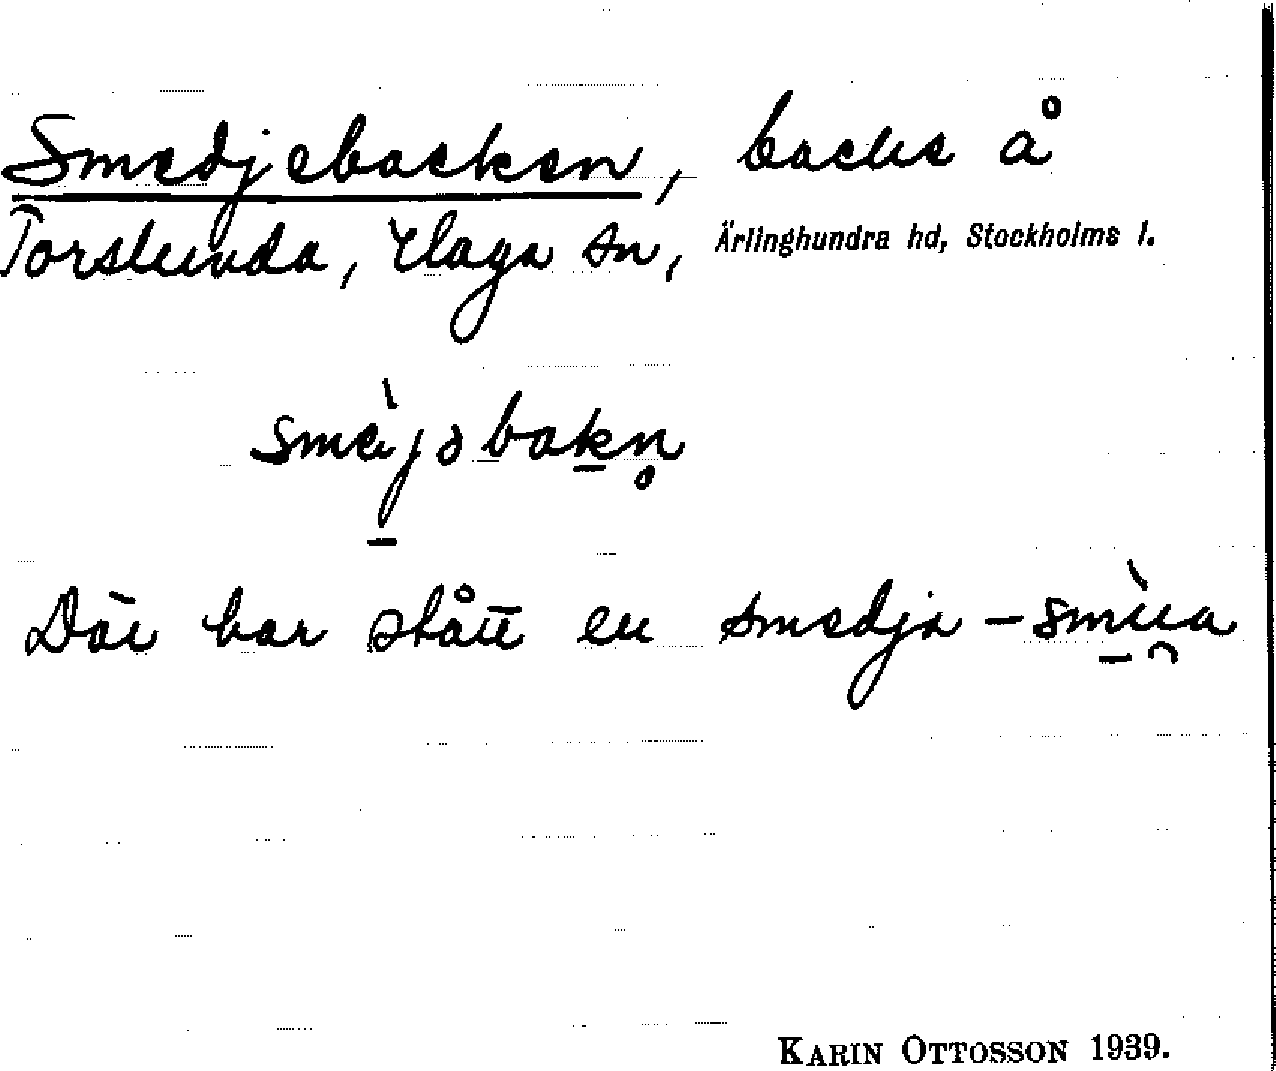 Smedjebacken, backe å
Torslunda, Haga sn, Ärlinghundra hd, Stockholms l.
smèjəbakn̥
Där har stått en smedja – smìa
KARIN OTTOSSON 1939.